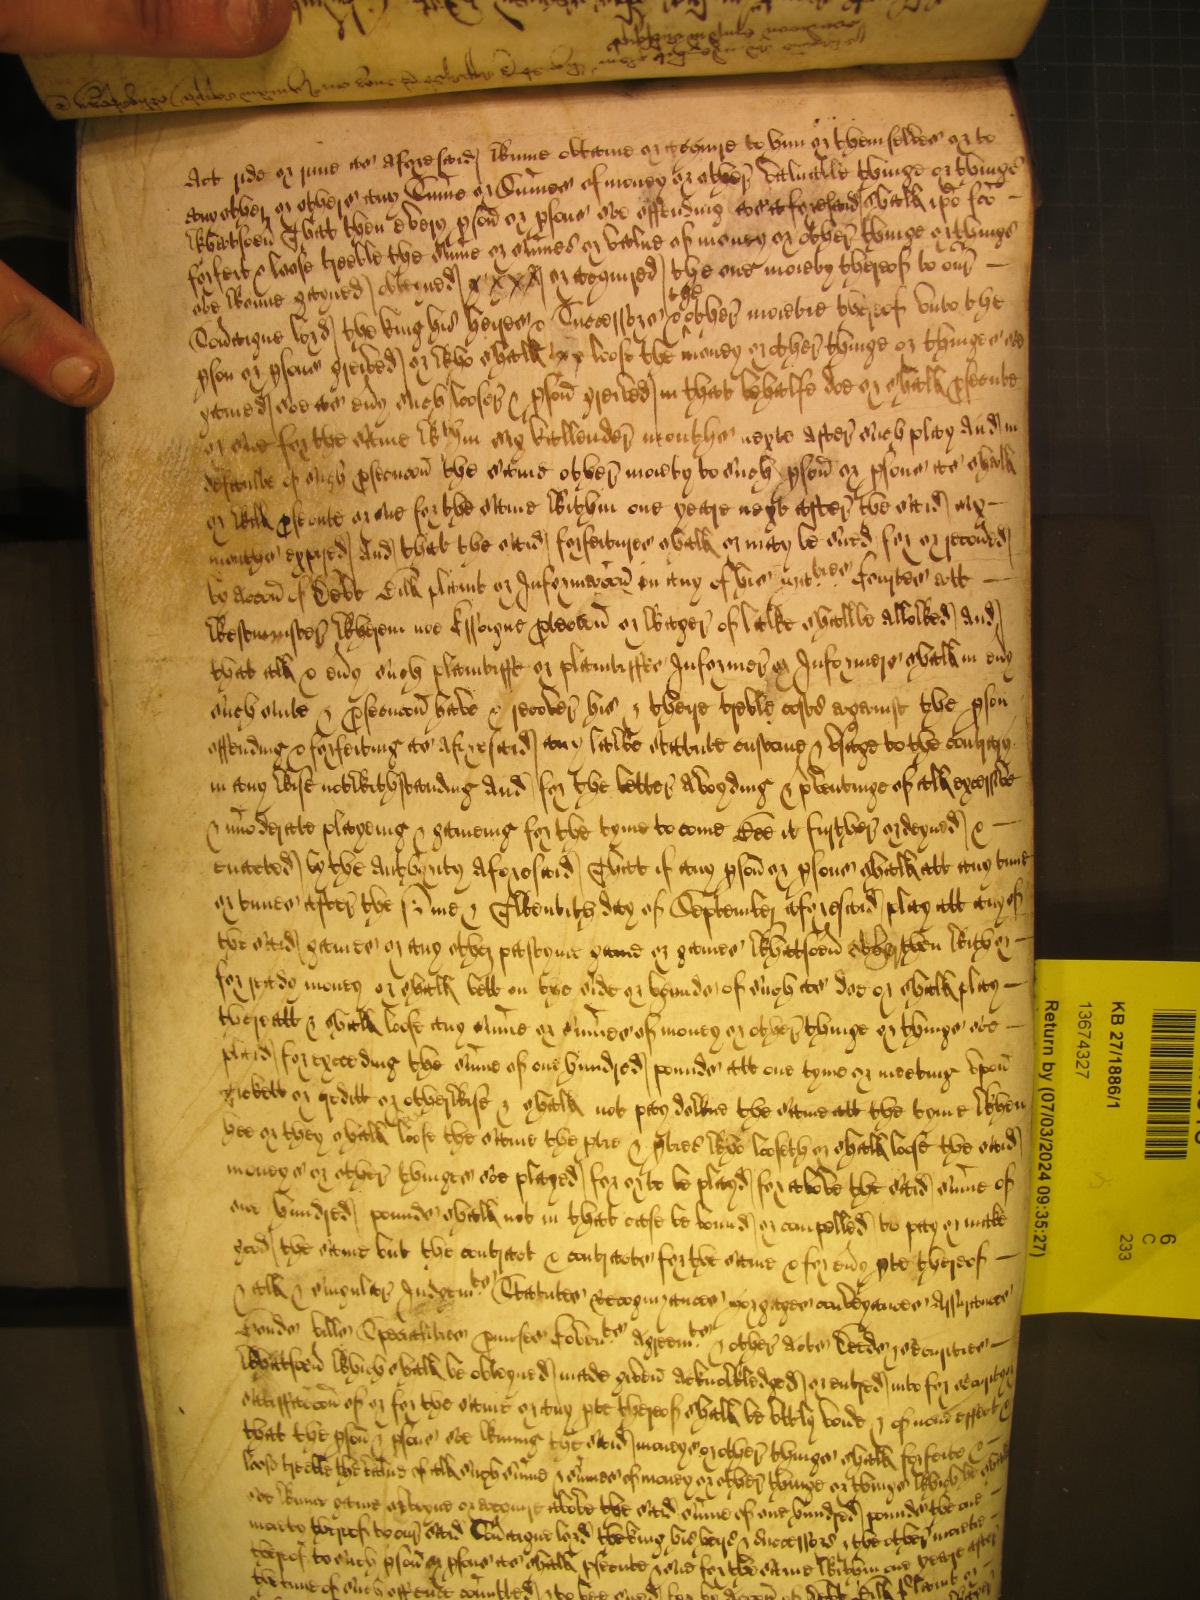 Act side or sune as aforesaid winne obtaine or acquire to him or themselves or to
any other or others any Sume or Sumes of money or other valuable thinge or thinges
whatsoeu' That then every pson or psons soe offending as aforesaid shall ipso fco
forfeit & loose treble the sume or sumes or value of money or other thinge or things
soe wonne gayned obteyned or acquired the one moiety thereof to our
Sou'aigne lord the king his heires & Successors & the other moietie thereof unto the
pson or psons greived or who shall loose the money or other thinge or thinges soe
gained soe as eu'y such looser & pson greived in that behalfe doe or shall psecute
or sue for the same wthin six kallender monthes next after such play And in
defaulte of such psecucon the same other moiety to such pson or psons as shall
or will psecute or sue for the same within one yeare next after the said six
monthes expired And that the said forfeitures shall or may be sued for or recou'ed
by accon of Debt Bill plaint or Informacon in any of his Courtes att
Westminster wherein noe Essoigne pteccon or wager of lawe shalbe allowed And
that all & eu'y such plaintiffe or plaintiffes Informer or Informers shall in eu'y
such suite & psecucon have & recover his & theire treble costs against the pson
offending & forfeiting as aforesaid any lawe statute custome & usage to the contrary
in any wise notwithstanding And for the better avoyding & pventinge of all excessive
& imoderate playeing & gameing for the tyme to come Bee it further ordeyned &
enacted by the authority aforesaid That if any pson or psons shall att any time
or times after the Nine & Twentith day of September aforesaid play att any of
the said games or any other pastyme game or games whatsoeu' other then with or
for ready money or shall bett on the side or hands of such as doe or shall play
thereatt & shall loose any sume or sumes of money or other thinge or thinge soe
plaid for exceeding the sume of one hundred pounds att one tyme or meeting upon
tickett or creditt or otherwise & shall not pay downe the same att the tyme when
hee or they shall loose the same the ptie & pties who looseth or shall loose the said
moneys or other thinges soe played for or to be played for above the said sume of
one hundred pounds shall not in that case be bound or compelled to pay or make
good the same but the contract & contracts for the same & for eu'y pte thereof
& all & singuler Judgemts Statutes Recognizances morgages conveyances Assurances
Bonds bills Specialties pmises Coven'ts Agreemts & other Acts Deeds & securities
whatsoeu' which shall be obteyned made given acknowledged or entred into for security or
satisfaccon of or for the same or any pte thereof shall be utterly voide & of none effect &
that the pson & psons soe winning the said moneys or other thinges shall forfeite &
loose treble the value of all such sume & sumes of money or other thinge or things which he shall
soe winne gaine obteyne or acquire above the said sume of one hundred pounds the one
moiety thereof to our said Sou'aigne lord the king his heires & successors & the other moietie
thereof to such pson or psons as shall psecute & sue for the same within one yeare after
the time of such offence comitted & to bee sued for by Accon of Debt Bill plaint or
KB 27/1886/1
13674327
Return by (07/03/2024 09:35:27)
6
C
233